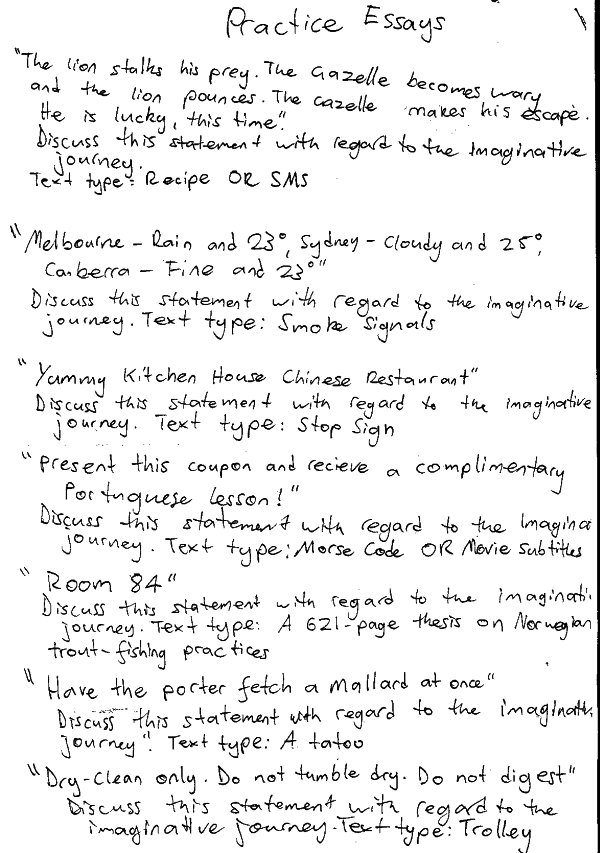 Practice Essays
"The lion stalks his prey. The Gazelle becomes wary
and the lion pounces. The Gazelle makes his escape.
He is lucky, this time".
Discuss this statement with regard to the imaginative
journey.
Text type: Recipe OR SMS
"Melbourne - Rain and 23°, Sydney - Cloudy and 25°,
Canberra - Fine and 23°"
Discuss this statement with regard to the imaginative
journey. Text type: Smoke Signals
"Yummy Kitchen House Chinese Restaurant"
Discuss this statement with regard to the imaginative
journey. Text type: Stop Sign
"Present this coupon and recieve a complimentary
Portuguese Lesson!"
Discuss this statement with regard to the Imagina
journey. Text type: Morse Code OR Movie subtitles
"Room 84"
Discuss this statement with regard to the imaginati
journey. Text type: A 621-page thesis on Norwegian
trout-fishing practices
"Have the porter fetch a Mallard at once"
Discuss this statement with regard to the imaginativ
journey". Text type: A tatoo
"Dry-Clean only. Do not tumble dry. Do not digest"
Discuss this statement with regard to the
imaginative journey. Text type: Trolley